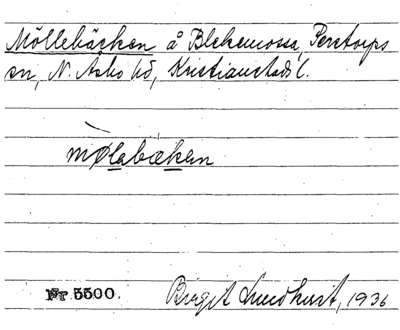 Möllebäcken å Blekemossa, Perstorps
sn, N. Åsbo hd, Kristianstads l.
mølabækan
Nr 5500. Birgit Lundqvist, 1936